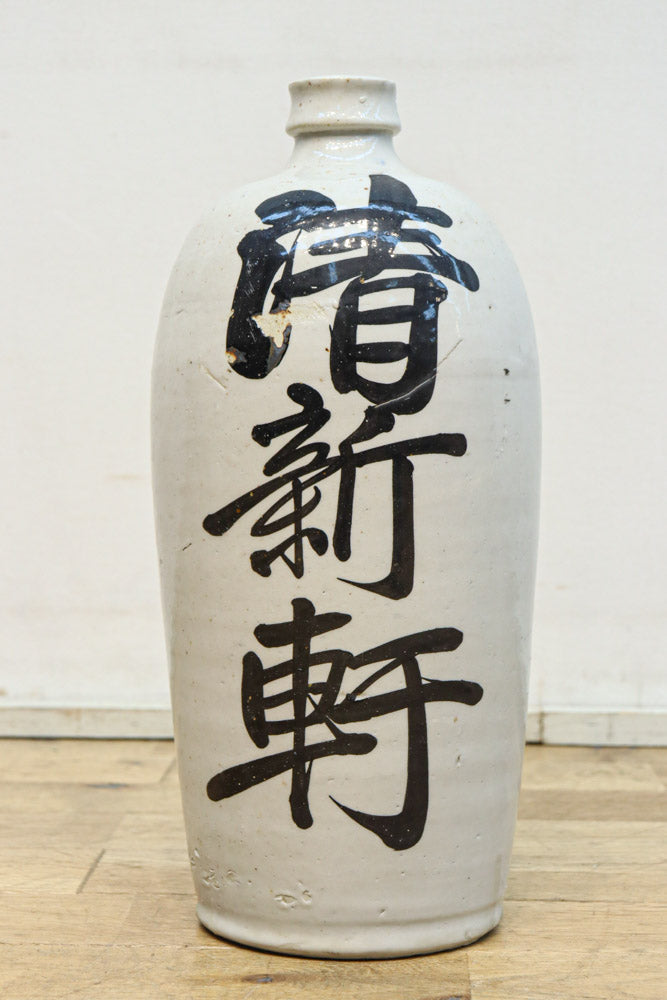 清新軒